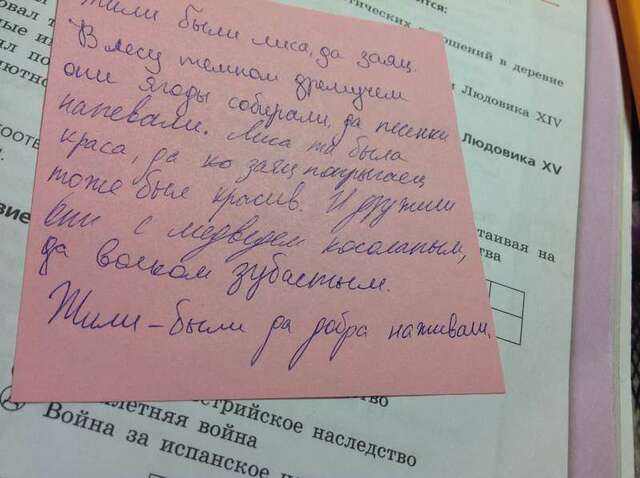 Жили были лиса, да заяц.
В лесу темном дремучем
они ягоды собирали, да песенки
напевали. Лиса та была
краса, да ко заяц попрыгаец
тоже был красив. И дружили
они с медведем косолапым,
да волком зубастым.
Жили-были да добра наживали.
тических отношений в деревне
Людовика XIV
Людовика XV
таивая на
ства
стрийское наследство
летняя война
Война за испанское